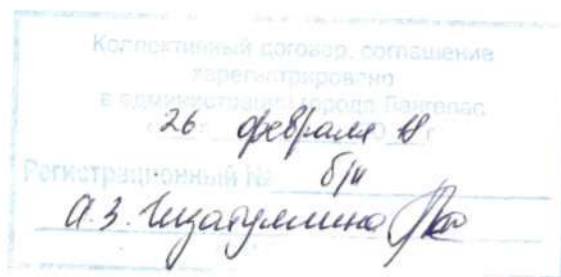 Коллективный договор, соглашение
зарегистрировано
в администрации города Лангепас
26 февраля 18 г
Регистрационный № б/н
А.З.